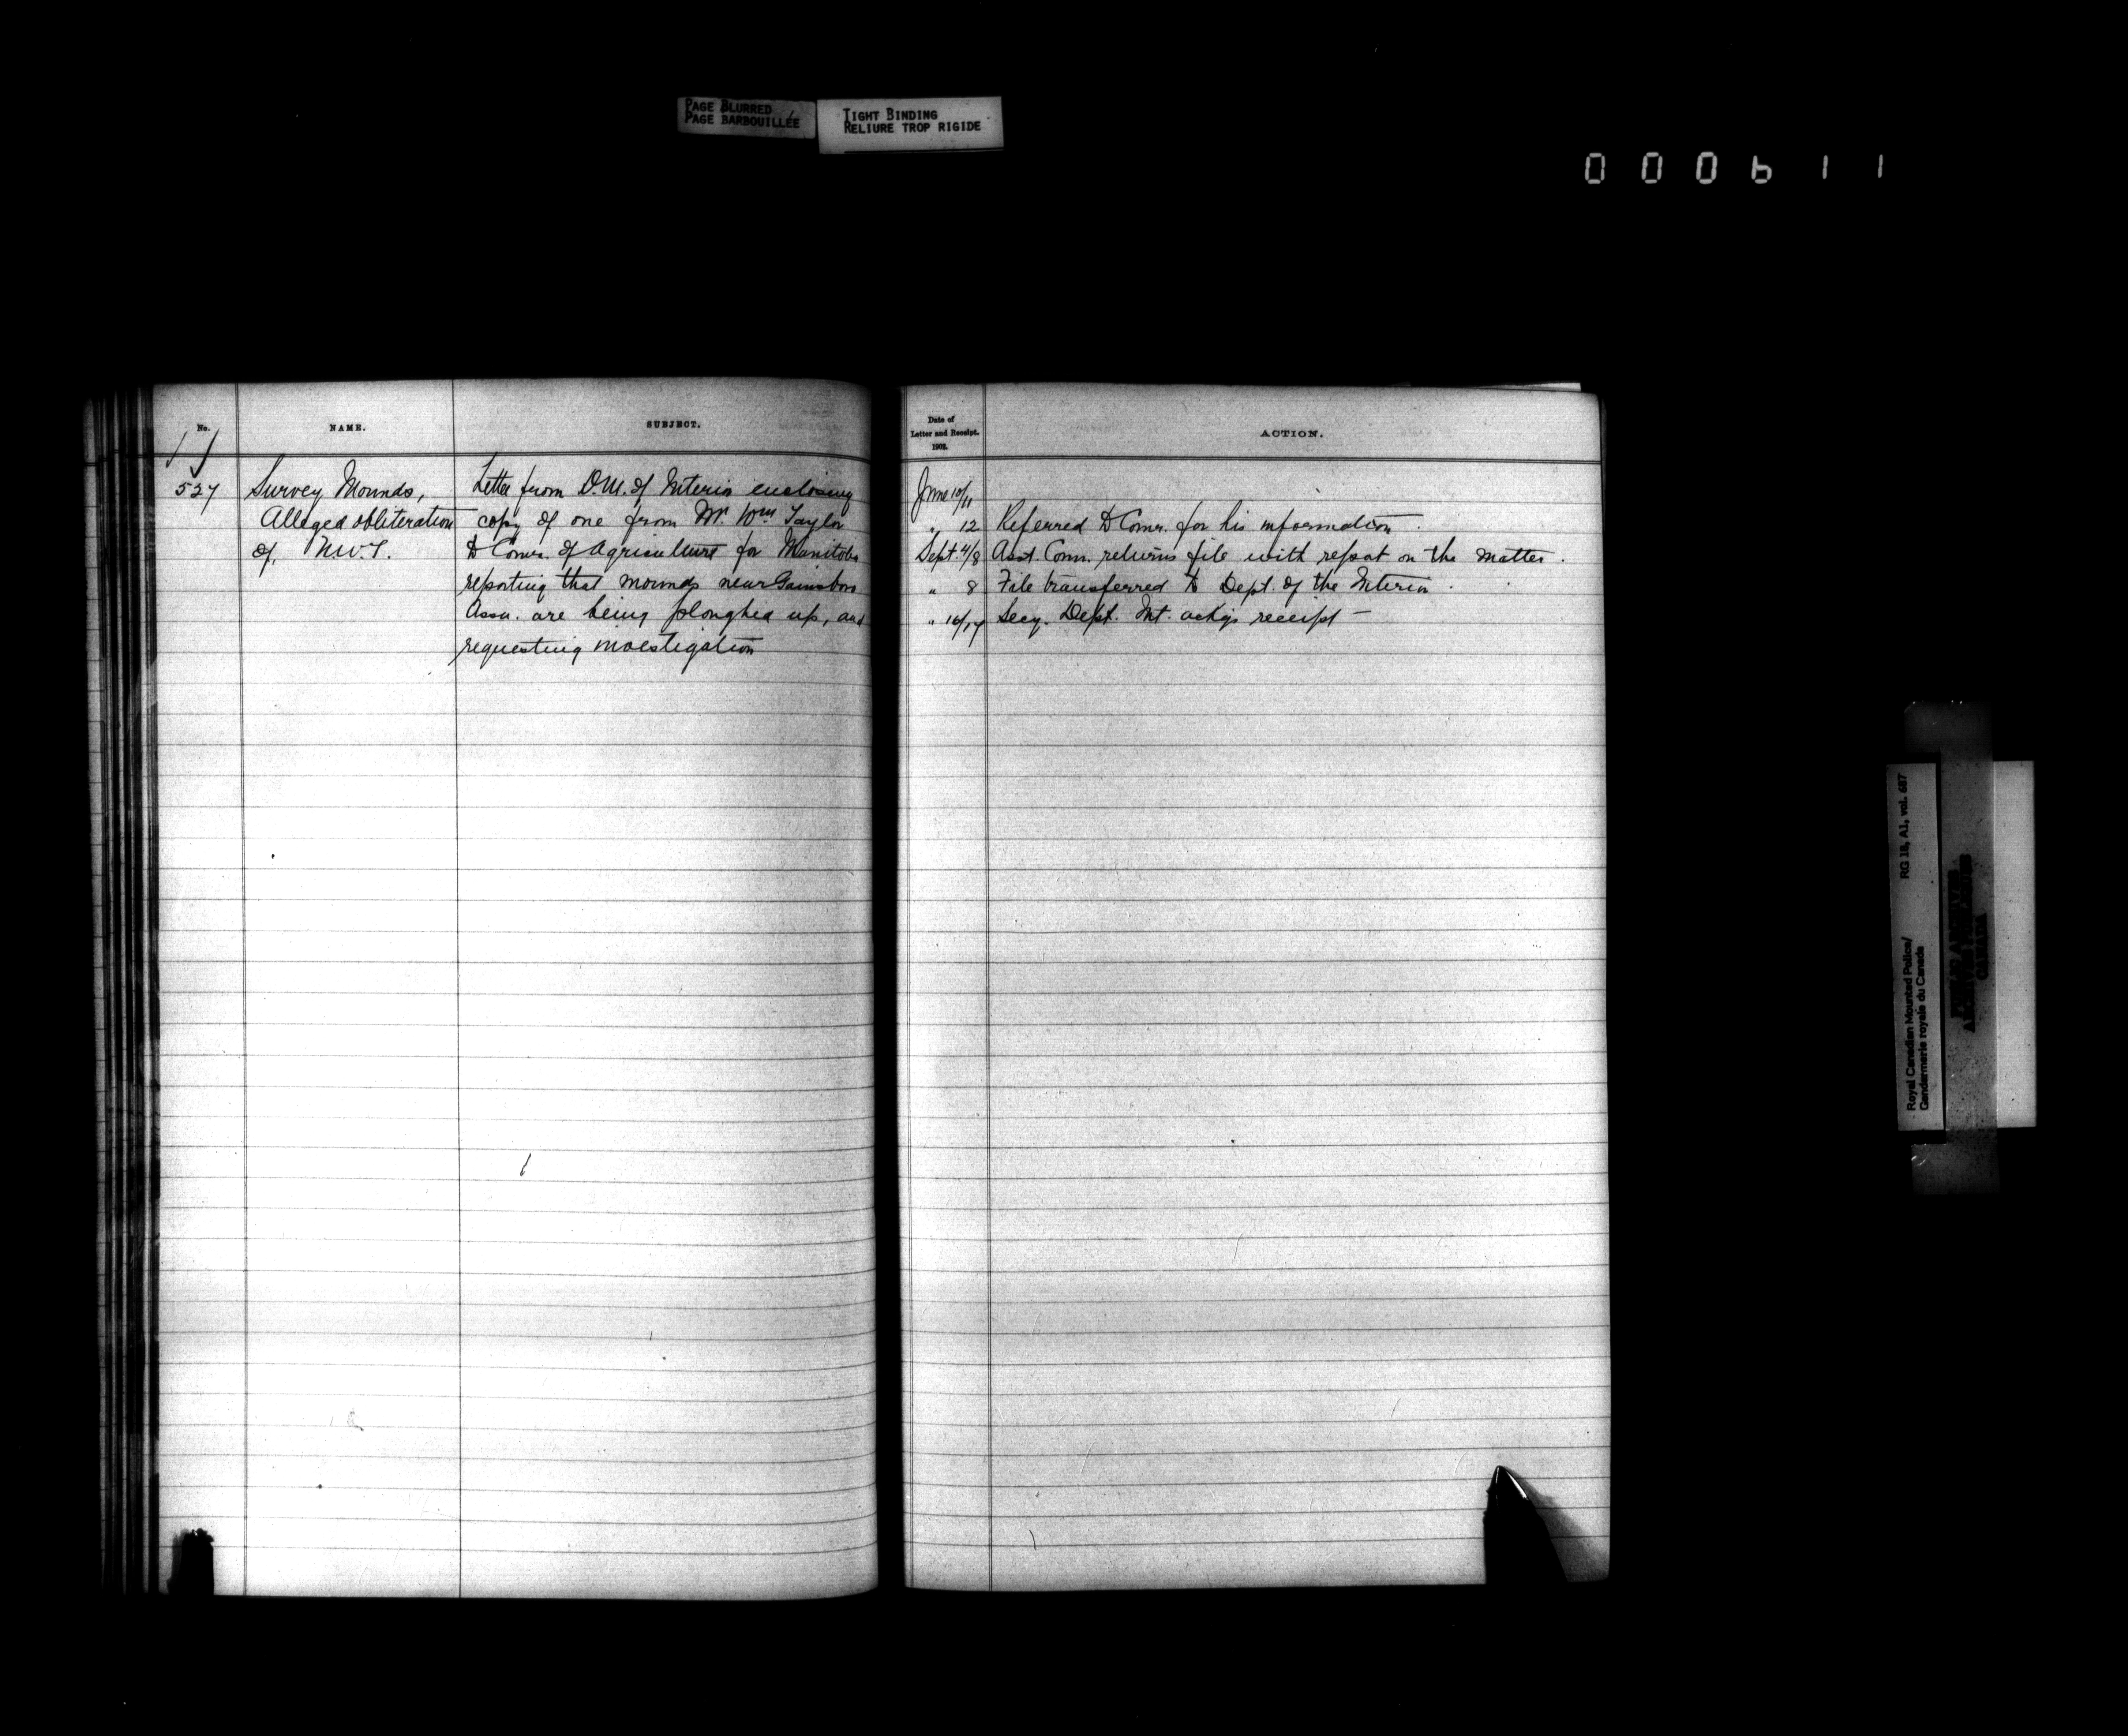 PAGE BLURRED
PAGE BARBOUILLÉE
TIGHT BINDING
RELIURE TROP RIGIDE
000611
No.
NAME.
SUBJECT.
527
Survey Mounds,
Alleged obliteration
of, N.W.T.
Letter from D.M. of Interior enclosing
copy of one from Mr. Wm Taylor
to Comr. of Agriculture for Manitoba
reporting that mounds near Gainsboro
Assa. are being ploughed up, and
requesting investigation
Date of
Letter and Receipt.
1902.
ACTION.
June 10/11
" 12 Referred to Comr. for his information.
Sept. 4/8 Asst. Comr. returns file with report on the matter.
" 8 File transferred to Dept. of the Interior.
" 16/17 Secy. Dept. Int. ackgs receipt —
Royal Canadian Mounted Police/
Gendarmerie royale du Canada
RG 18, A1, vol. 687
PUBLIC ARCHIVES
ARCHIVES PUBLIQUES
CANADA